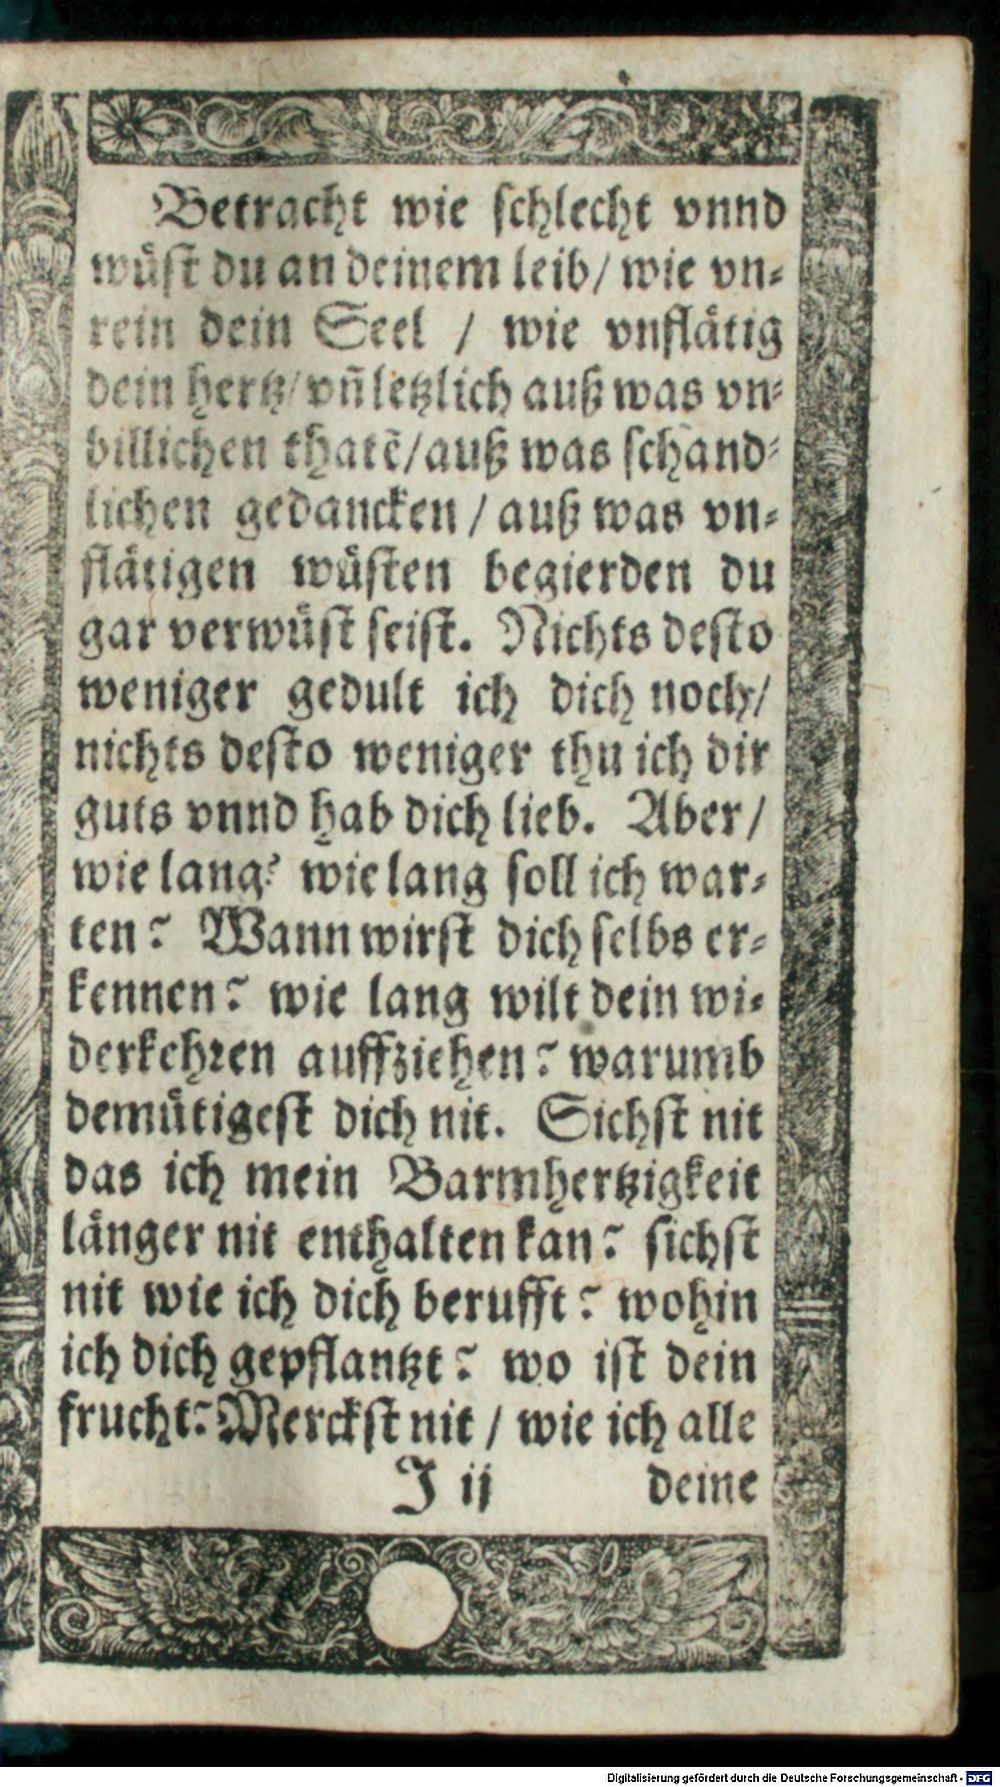 Betracht wie schlecht vnnd
wüst du an deinem leib/ wie vn⸗
rein dein Seel / wie vnflätig
dein hertz/ vñ letzlich auß was vn⸗
billichen thatẽ/ auß was schand⸗
lichen gedancken / auß was vn⸗
flätigen wüsten begierden du
gar verwüst seist. Nichts desto
weniger gedult ich dich noch/
nichts desto weniger thu ich dir
guts vnnd hab dich lieb. Aber/
wie lang? wie lang soll ich war⸗
ten? Wann wirst dich selbs er⸗
kennen? wie lang wilt dein wi⸗
derkehren auffziehen? warumb
demütigest dich nit. Sichst nit
das ich mein Barmhertzigkeit
länger nit enthalten kan? sichst
nit wie ich dich berufft? wohin
ich dich gepflantzt? wo ist dein
frucht? Merckst nit / wie ich alle
J ij deine
Digitalisierung gefördert durch die Deutsche Forschungsgemeinschaft - DFG